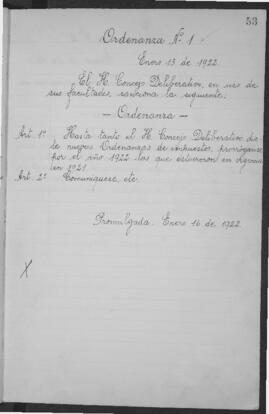 53
Ordenanza Nº 1
Enero 13 de 1922.
El H. Concejo Deliberativo, en uso de
sus facultades, sanciona la siguiente:
— Ordenanza —
Art. 1º Hasta tanto el H. Concejo Deliberativo dic-
te nuevas Ordenanzas de impuestos, prorrógase
por el año 1922 las que estuvieron en vigencia
en 1921
Art. 2º Comuníquese, etc.
Promulgada. Enero 16 de 1922.
X